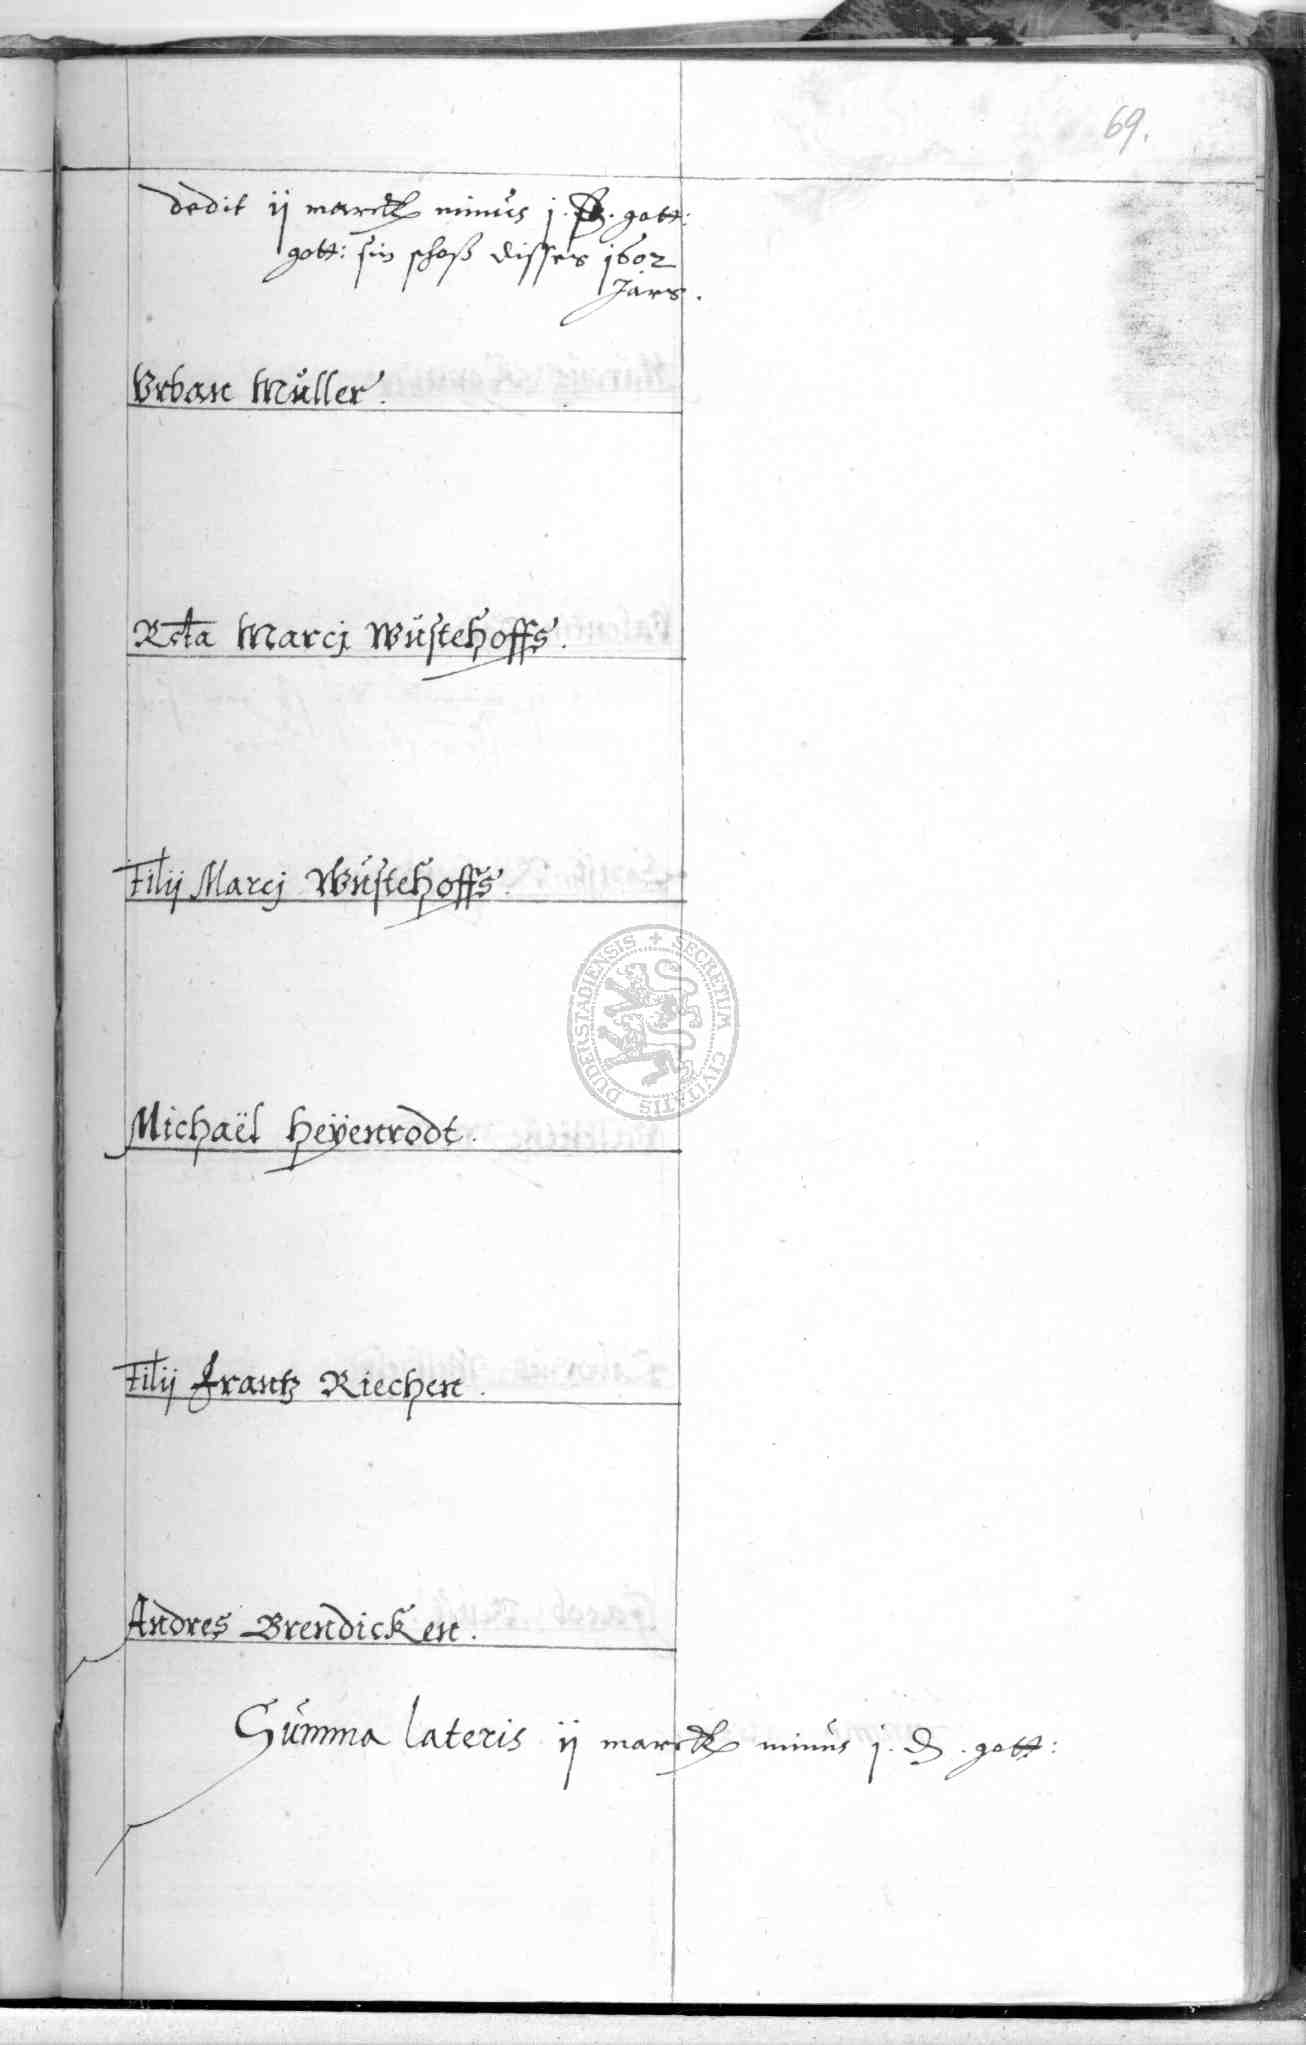 69.
dedit ij marck minus j. ₰. gott:
gott: sin schoß disses 1602
Jars.
Urban Müller.
Rcta Marcj Wüstehoffs.
Filij Marcj Wüstehoffs.
DUDERSTADIENSIS + SECRETUM CIVITATIS
Michaël Heÿenrodt.
Filij Frantz Riechen.
Andres Brendicken.
Summa lateris ij marck minus j. ₰. gott: